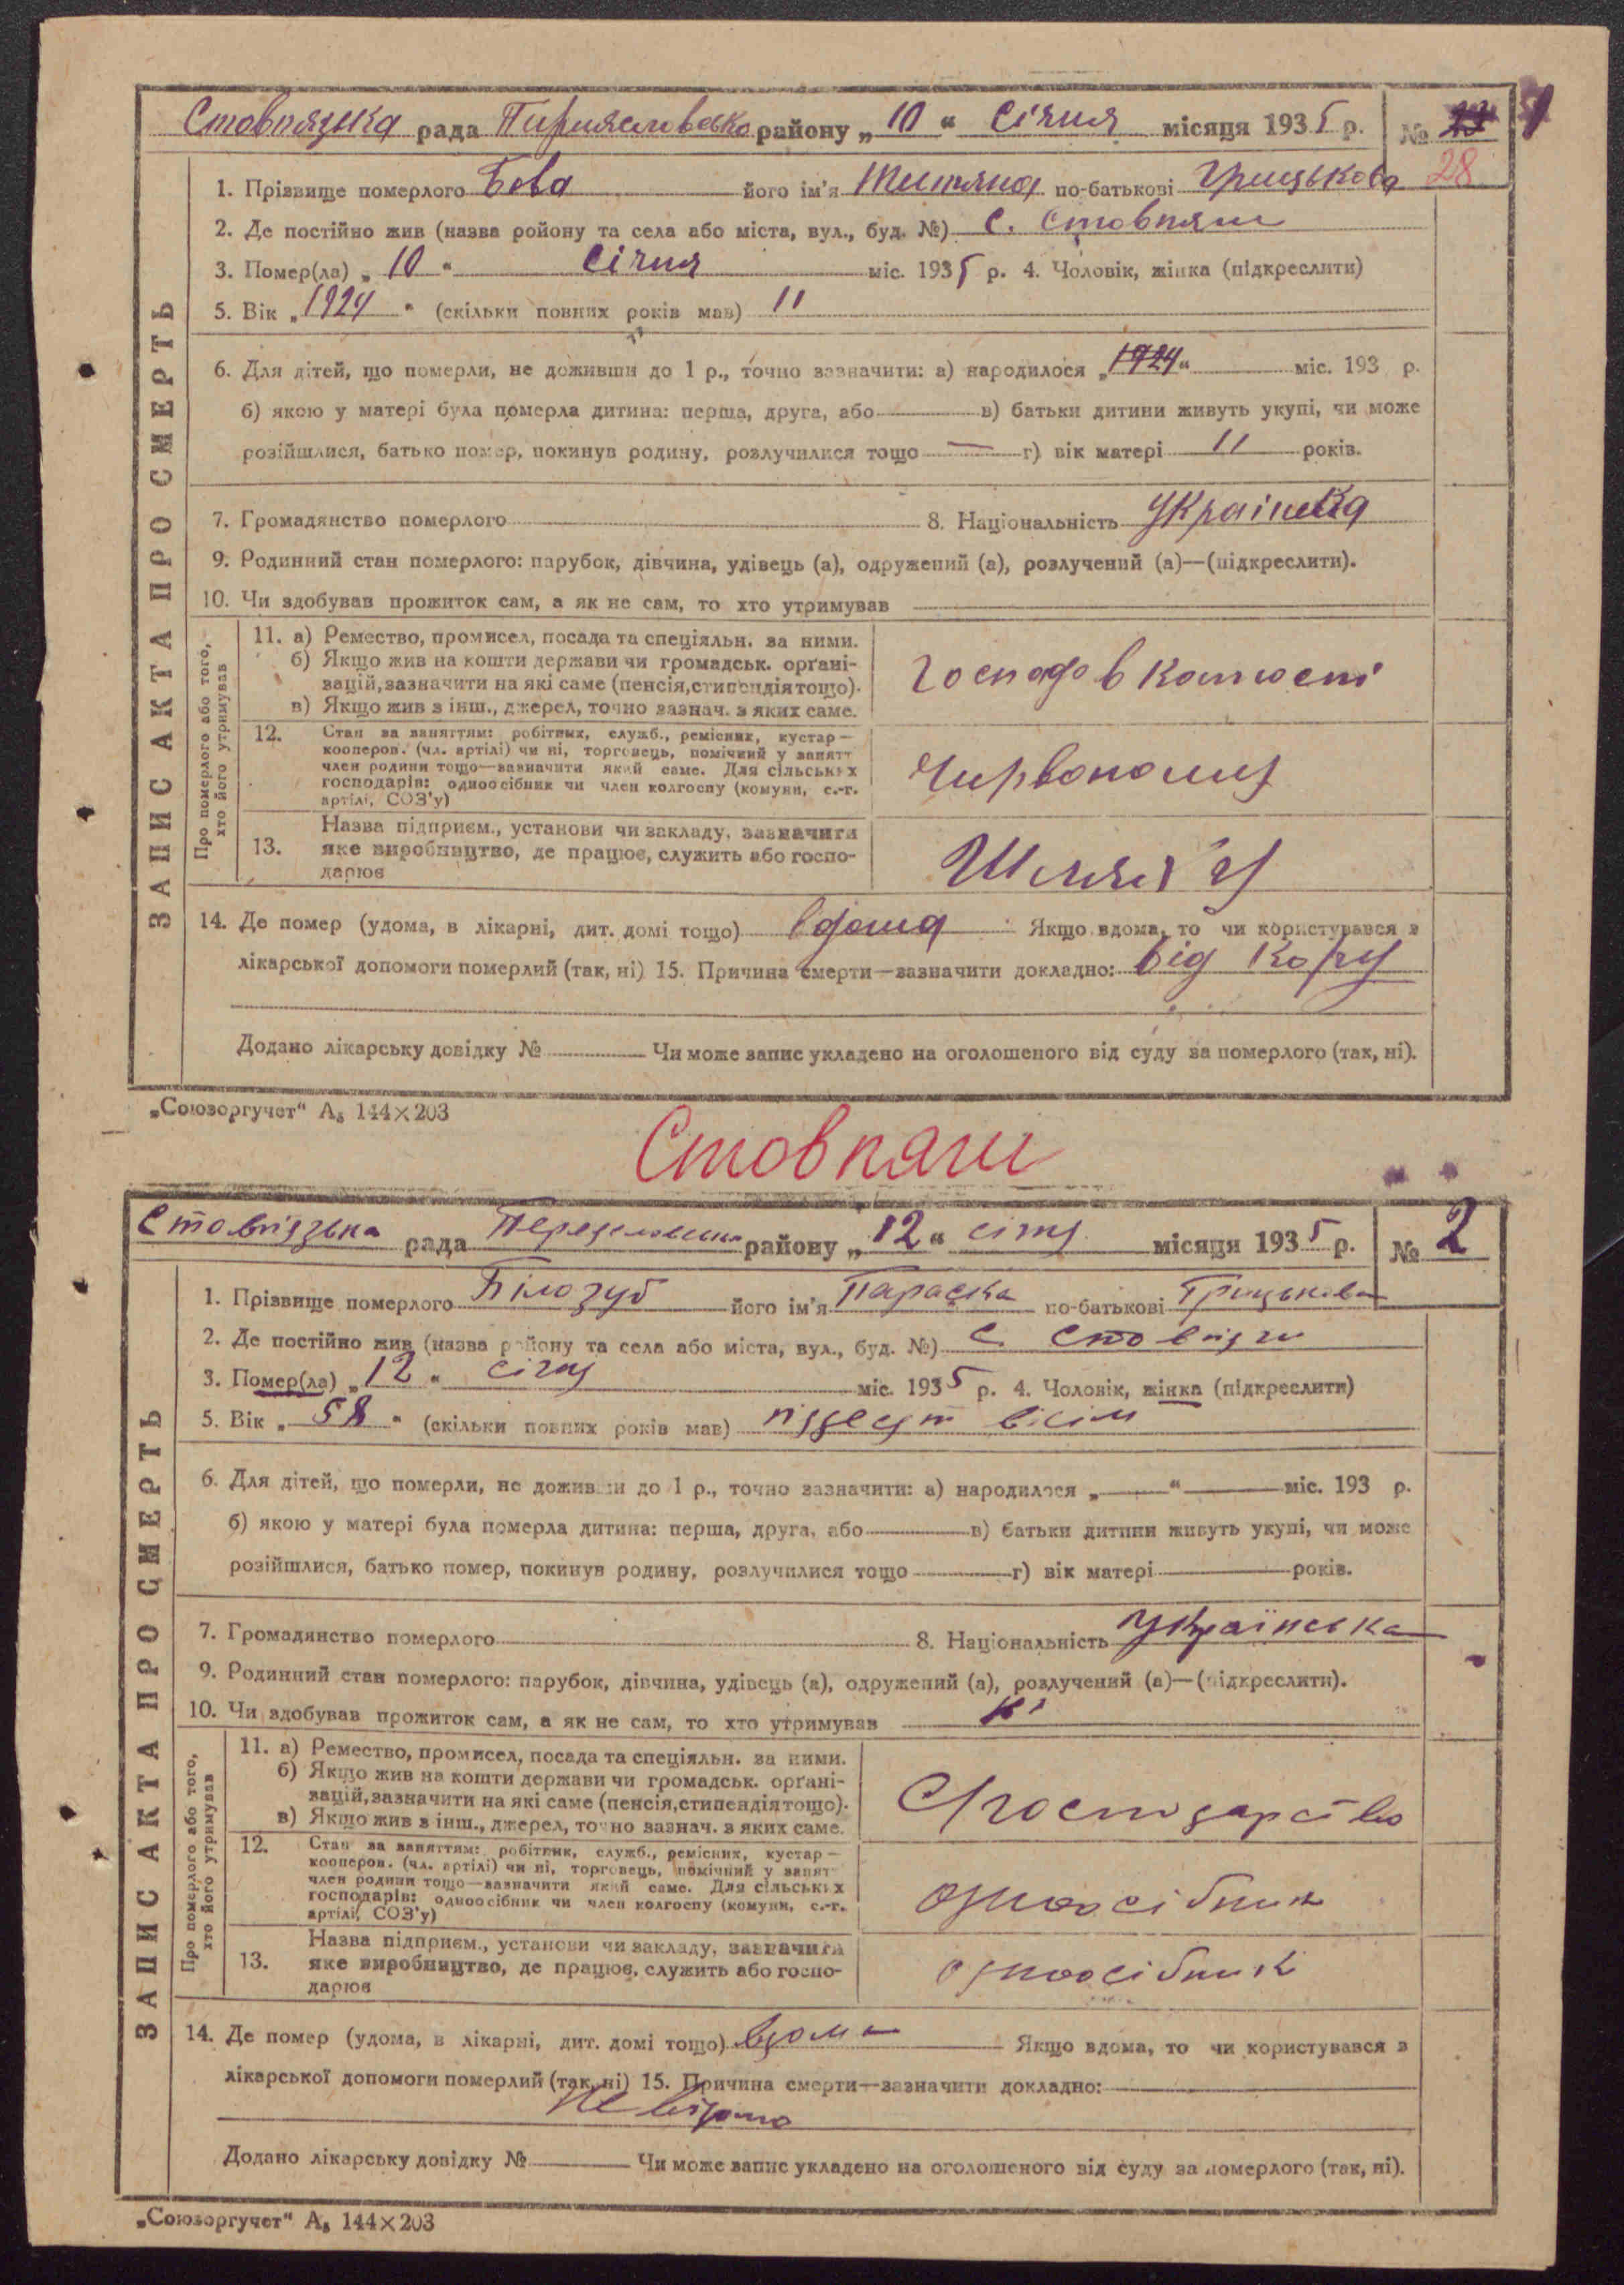 Стовпязька рада Пириясловсько району „10“ Січня місяця 1935 р. № 1
28
1. Прізвище померлого Бова його ім'я Титяна по-батькові Грицькова
2. Де постійно жив (назва ройону та села або міста, вул., буд. №) С. Стовпяги
3. Помер(ла) „10“ Січня міс. 1935 р. 4. Чоловік, жінка (підкреслити)
5. Вік „1924“ (скільки повних років мав) 11
6. Для дітей, що померли, не доживши до 1 р., точно зазначити: а) народилося „1924“ міс. 193 р.
б) якою у матері була померла дитина: перша, друга, або в) батьки дитини живуть укупі, чи може
розійшлися, батько помер, покинув родину, розлучилися тощо — г) вік матері 11 років.
7. Громадянство померлого 8. Національність Українка
9. Родинний стан померлого: парубок, дівчина, удівець (а), одружений (а), розлучений (а)—(підкреслити).
10. Чи здобував прожиток сам, а як не сам, то хто утримував
ЗАПИС АКТА ПРО СМЕРТЬ
Про померлого або того, хто його утримував
11. а) Ремество, промисел, посада та спеціяльн. за ними.
б) Якщо жив на кошти держави чи громадськ. орґані-
зацій, зазначити на які саме (пенсія, стипендія тощо).
в) Якщо жив з інш., джерел, точно зазнач. з яких саме.
12. Стан за заняттям: робітник, служб., ремісник, кустар—
кооперов. (чл. артілі) чи ні, торговець, помічний у занятт
член родини тощо—зазначити який саме. Для сільських
господарів: одноосібник чи член колгоспу (комуни, с.-г.
артілі, СОЗ'у)
13. Назва підприєм., установи чи закладу, зазначити
яке виробництво, де працює, служить або госпо-
дарює
14. Де помер (удома, в лікарні, дит. домі тощо) вдома Якщо вдома, то чи користувався з
лікарської допомоги померлий (так, ні) 15. Причина смерти—зазначити докладно: від кору
Додано лікарську довідку № Чи може запис укладено на оголошеного від суду за померлого (так, ні).
„Союзоргучет“ А₅ 144×203
Стовпяги
Стовпязька рада району „12“ січня місяця 1935 р. № 2
1. Прізвище померлого Білозуб його ім'я Параска по-батькові Грицькова
2. Де постійно жив (назва району та села або міста, вул., буд. №) С Стовпяги
3. Помер(ла) „12“ січня міс. 1935 р. 4. Чоловік, жінка (підкреслити)
5. Вік „58“ (скільки повних років мав) піддесят вісім
6. Для дітей, що померли, не доживши до 1 р., точно зазначити: а) народилося „—“ — міс. 193 р.
б) якою у матері була померла дитина: перша, друга, або в) батьки дитини живуть укупі, чи може
розійшлися, батько помер, покинув родину, розлучилися тощо г) вік матері років.
7. Громадянство померлого 8. Національність Українська
9. Родинний стан померлого: парубок, дівчина, удівець (а), одружений (а), розлучений (а)—(підкреслити).
10. Чи здобував прожиток сам, а як не сам, то хто утримував ні
ЗАПИС АКТА ПРО СМЕРТЬ
Про померлого або того, хто його утримував
11. а) Ремество, промисел, посада та спеціяльн. за ними.
б) Якщо жив на кошти держави чи громадськ. орґані-
зацій, зазначити на які саме (пенсія, стипендія тощо).
в) Якщо жив з інш., джерел, точно зазнач. з яких саме.
12. Стан за заняттям: робітник, служб., ремісник, кустар—
кооперов. (чл. артілі) чи ні, торговець, помічний у занятт
член родини тощо—зазначити який саме. Для сільських
господарів: одноосібник чи член колгоспу (комуни, с.-г.
артілі, СОЗ'у)
одноосібник
13. Назва підприєм., установи чи закладу, зазначити
яке виробництво, де працює, служить або госпо-
дарює
одноосібник
14. Де помер (удома, в лікарні, дит. домі тощо) вдома Якщо вдома, то чи користувався з
лікарської допомоги померлий (так, ні) 15. Причина смерти—зазначити докладно:
Не відомо
Додано лікарську довідку № Чи може запис укладено на оголошеного від суду за померлого (так, ні).
„Союзоргучет“ А₅ 144×203